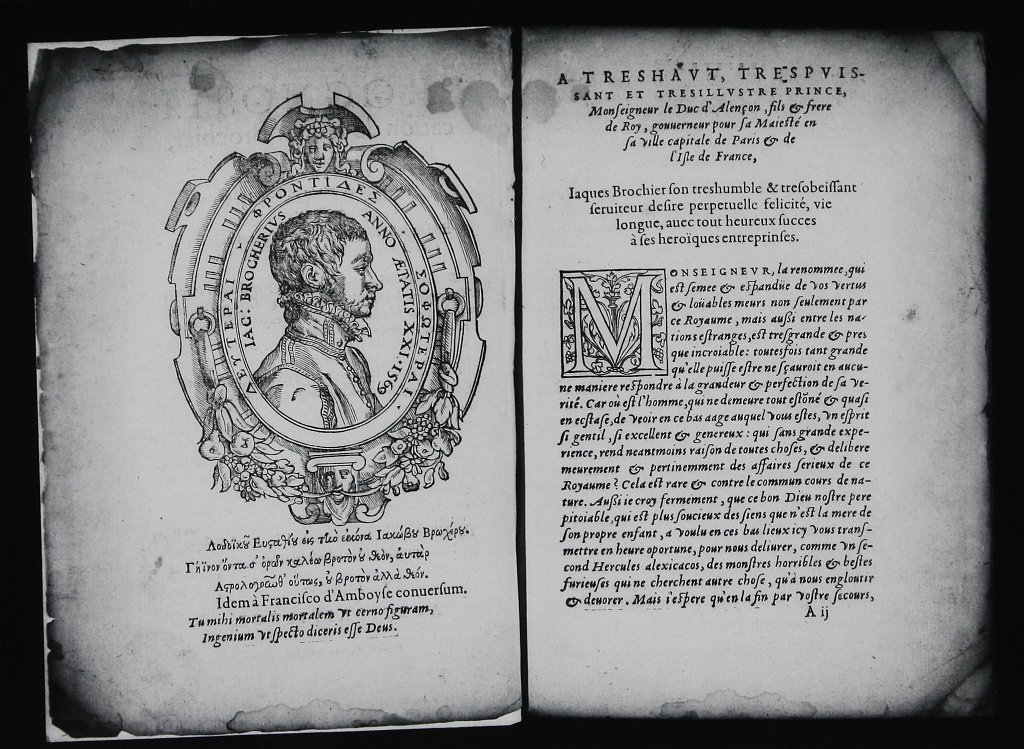 ΔΕΥΤΕΡΑΙ ΦΡΟΝΤΙΔΕΣ ΣΟΦΩΤΕΡΑΙ.
IAC: BROCHERIVS ANNO ÆTATIS XXI. 1569
εἰς εἰκόνα Ιακώβου
βροτὸν ἀλλὰ θεόν.
Idem à Francisco d'Amboyse conuersum.
Tu mihi mortalis mortalem vt cerno figuram,
Ingenium vt specto diceris esse Deus.
A TRESHAVT, TRESPVIS-
SANT ET TRESILLVSTRE PRINCE,
Monseigneur le Duc d'Alençon, fils & frere
de Roy, gouuerneur pour sa Maiesté en
sa ville capitale de Paris & de
l'Isle de France,
Iaques Brochier son treshumble & tresobeissant
seruiteur desire perpetuelle felicité, vie
longue, auec tout heureux succes
à ses heroïques entreprinses.
MONSEIGNEVR, la renommee, qui
est semee & espandüe de vos vertus
& loüables meurs non seulement par
ce Royaume, mais aussi entre les na-
tions estranges, est tresgrande & pres
que incroiable: toutesfois tant grande
qu'elle puisse estre ne sçauroit en aucu-
ne maniere respondre à la grandeur & perfection de sa ve-
rité. Car où est l'homme, qui ne demeure tout estōné & quasi
en ecstase, de veoir en ce bas aage auquel vous estes, vn esprit
si gentil, si excellent & genereux: qui sans grande expe-
rience, rend neantmoins raison de toutes choses, & delibere
meurement & pertinemment des affaires serieux de ce
Royaume? Cela est rare & contre le commun cours de na-
ture. Aussi ie croy fermement, que ce bon Dieu nostre pere
pitoiable, qui est plus soucieux des siens que n'est la mere de
son propre enfant, a voulu en ces bas lieux icy vous trans-
mettre en heure oportune, pour nous deliurer, comme vn se-
cond Hercules alexicacos, des monstres horribles & bestes
furieuses qui ne cherchent autre chose, qu'à nous engloutir
& deuorer. Mais i'espere qu'en la fin par vostre secours,
A ij